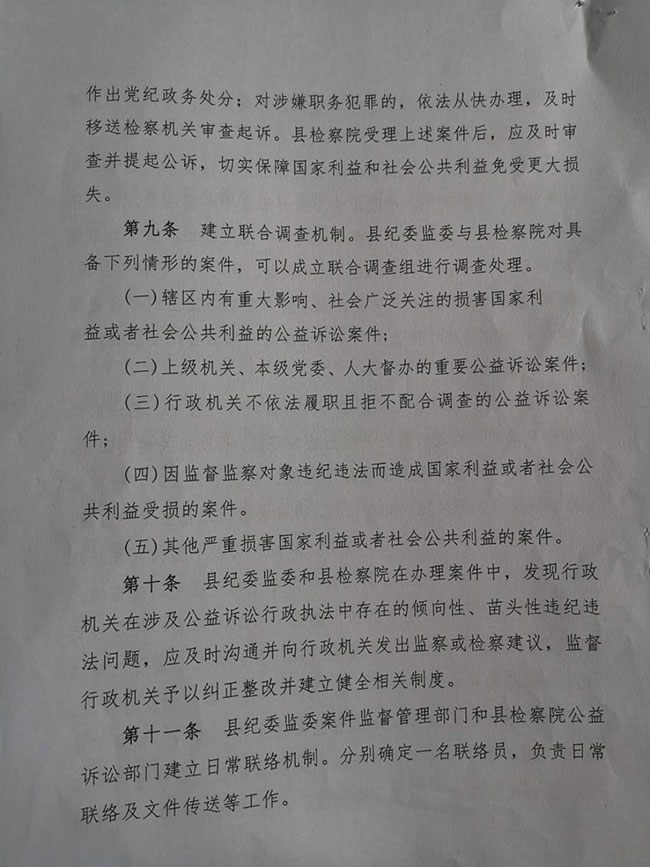 作出党纪政务处分；对涉嫌职务犯罪的，依法从快办理，及时
移送检察机关审查起诉。县检察院受理上述案件后，应及时审
查并提起公诉，切实保障国家利益和社会公共利益免受更大损
失。
第九条 建立联合调查机制。县纪委监委与县检察院对具
备下列情形的案件，可以成立联合调查组进行调查处理。
(一)辖区内有重大影响、社会广泛关注的损害国家利
益或者社会公共利益的公益诉讼案件；
(二)上级机关、本级党委、人大督办的重要公益诉讼案件；
(三)行政机关不依法履职且拒不配合调查的公益诉讼案
件；
(四)因监督监察对象违纪违法而造成国家利益或者社会公
共利益受损的案件。
(五)其他严重损害国家利益或者社会公共利益的案件。
第十条 县纪委监委和县检察院在办理案件中，发现行政
机关在涉及公益诉讼行政执法中存在的倾向性、苗头性违纪违
法问题，应及时沟通并向行政机关发出监察或检察建议，监督
行政机关予以纠正整改并建立健全相关制度。
第十一条 县纪委监委案件监督管理部门和县检察院公益
诉讼部门建立日常联络机制。分别确定一名联络员，负责日常
联络及文件传送等工作。